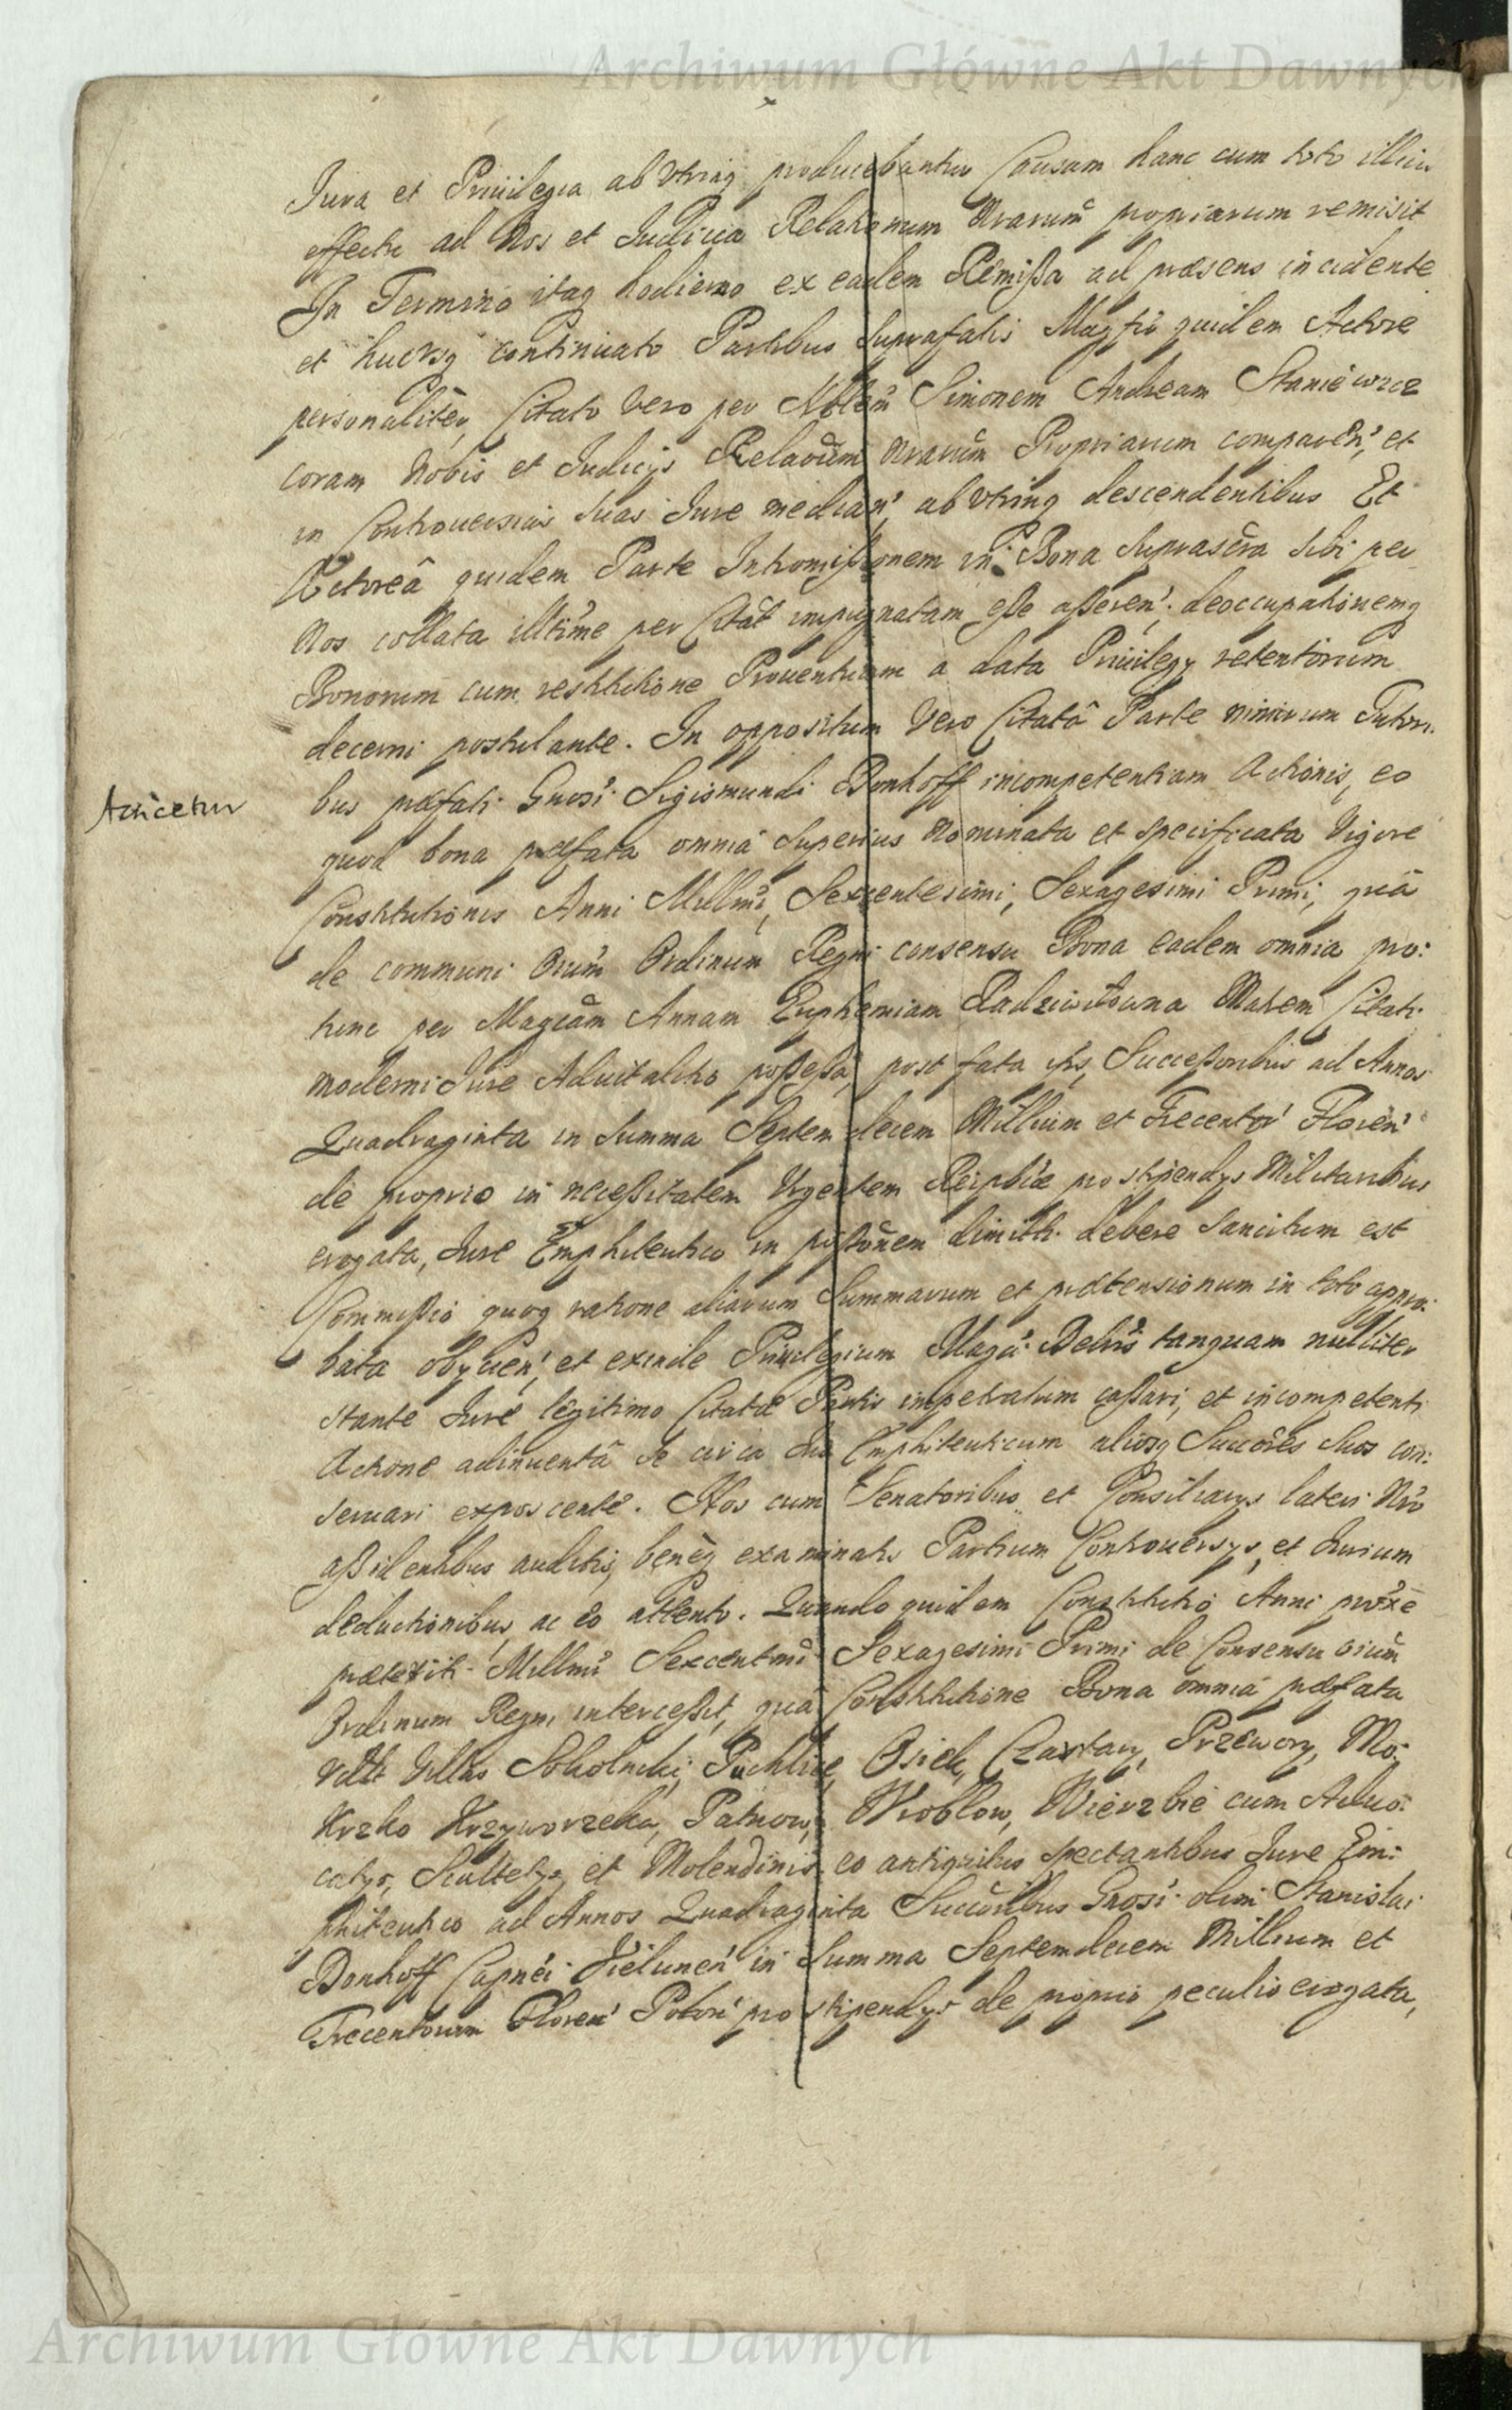 Archiwum Główne Akt Dawnych
Iura et Priuilegia ab vtrinq producebantur Causam hanc cum toto illius
effectu ad Nos et Iudicia Relationum Nrarum propriarum remisit
In Termino itaq hodierno ex eadem Remissa ad præsens incidente
et hucvsq continuato Partibus suprafatis Magfco quidem Actore
personaliter, Citato vero per Nblem Simonem Andream Staniewicz
coram Nobis et Iudicijs Relaoum Nrarum Propriarum comparen', et
in Controuersias suas Iure median', ab vtrinq descendentibus Et
Actoreâ quidem Parte Intromissionem in Bona suprascra sibi per
Nos collata illtime per Citat impugnatam esse asseren', deoccupationemq
Bonorum cum restitutione Prouentuum a data Priuilegy retentorum
decerni postulante. In oppositum vero Citatâ Parte nimirum Tutori:
bus præfati Gnosi Sigismundi Donhoff incompetentiam Actionis, eo
Acticetur
quod bona præfata omnia superius nominata et specificata Vigore
Constitutionis Anni Millmi, Sexcentesimi, Sexagesimi Primi, quâ
de communi Oium Ordinum Regni consensu Bona eadem omnia pro:
tunc per Magcam Annam Euphemiam Radziwiłowna Matrem Citati
moderni Iure Aduitalitio possessa, post fata eius, Successoribus ad Annos
Quadraginta in Summa Septemdecem Millium et Trecentor' Floren'
de proprio in necessitatem Vrgentem Reiplicæ pro stipendys Militaribus
erogata, Iure Emphiteutico in possonem dimitti debere sancitum est
Commissio quoq ratione aliarum Summarum et prætensionum in toto appro:
bata obycien', et exinde Priuilegium Magci Actoris tanquam nulliter
stante Iure legitimo Citatæ Partis impetratum cassari, et incompetenti
Actione adinuentâ se circa Ius Emphiteuticum aliosq Succores suos con:
seruari exposcente. Nos cum Senatoribus et Consiliarys lateri Nro
assidentibus auditis, beneq examinatis Partium Controuersys, et Iurium
deductionibus, ac eo attento. Quando quidem Constitutio Anni proxe
præteriti Millmi Sexcentmi Sexagesimi Primi de Consensu oium
Ordinum Regni intercessit, quâ Constitutione Bona omnia præfata
vdtt Villas Sokolniki, Pichlice, Osiek, Czastary, Przewory, Mo:
krzko Krzyworzeka, Patnow, Wroblow, Wierzbie cum Aduo:
catys, Scultetys, et Molendinis eo antiquitus spectantibus Iure Em:
phiteutico ad Annos Quadraginta Succoribus Gnosi olim Stanislai
Donhoff Capnei Vielunen' in Summa Septemdecem Millium et
Trecentorum Floren' Polon' pro stipendys de proprio peculio erogata,
Archiwum Główne Akt Dawnych